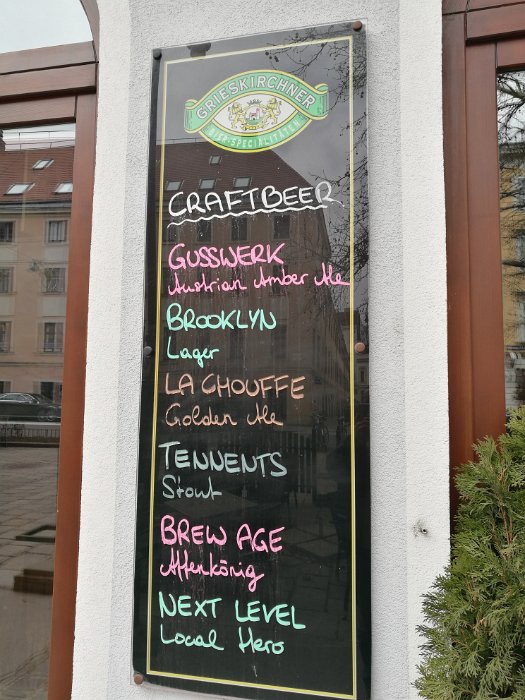 GRIESKIRCHNER
BIER-SPECIALITÄTEN
CRAFTBEER
GUSSWERK
Austrian Amber Ale
BROOKLYN
Lager
LA CHOUFFE
Golden Ale
TENNENTS
Stout
BREW AGE
Affenkönig
NEXT LEVEL
Local Hero